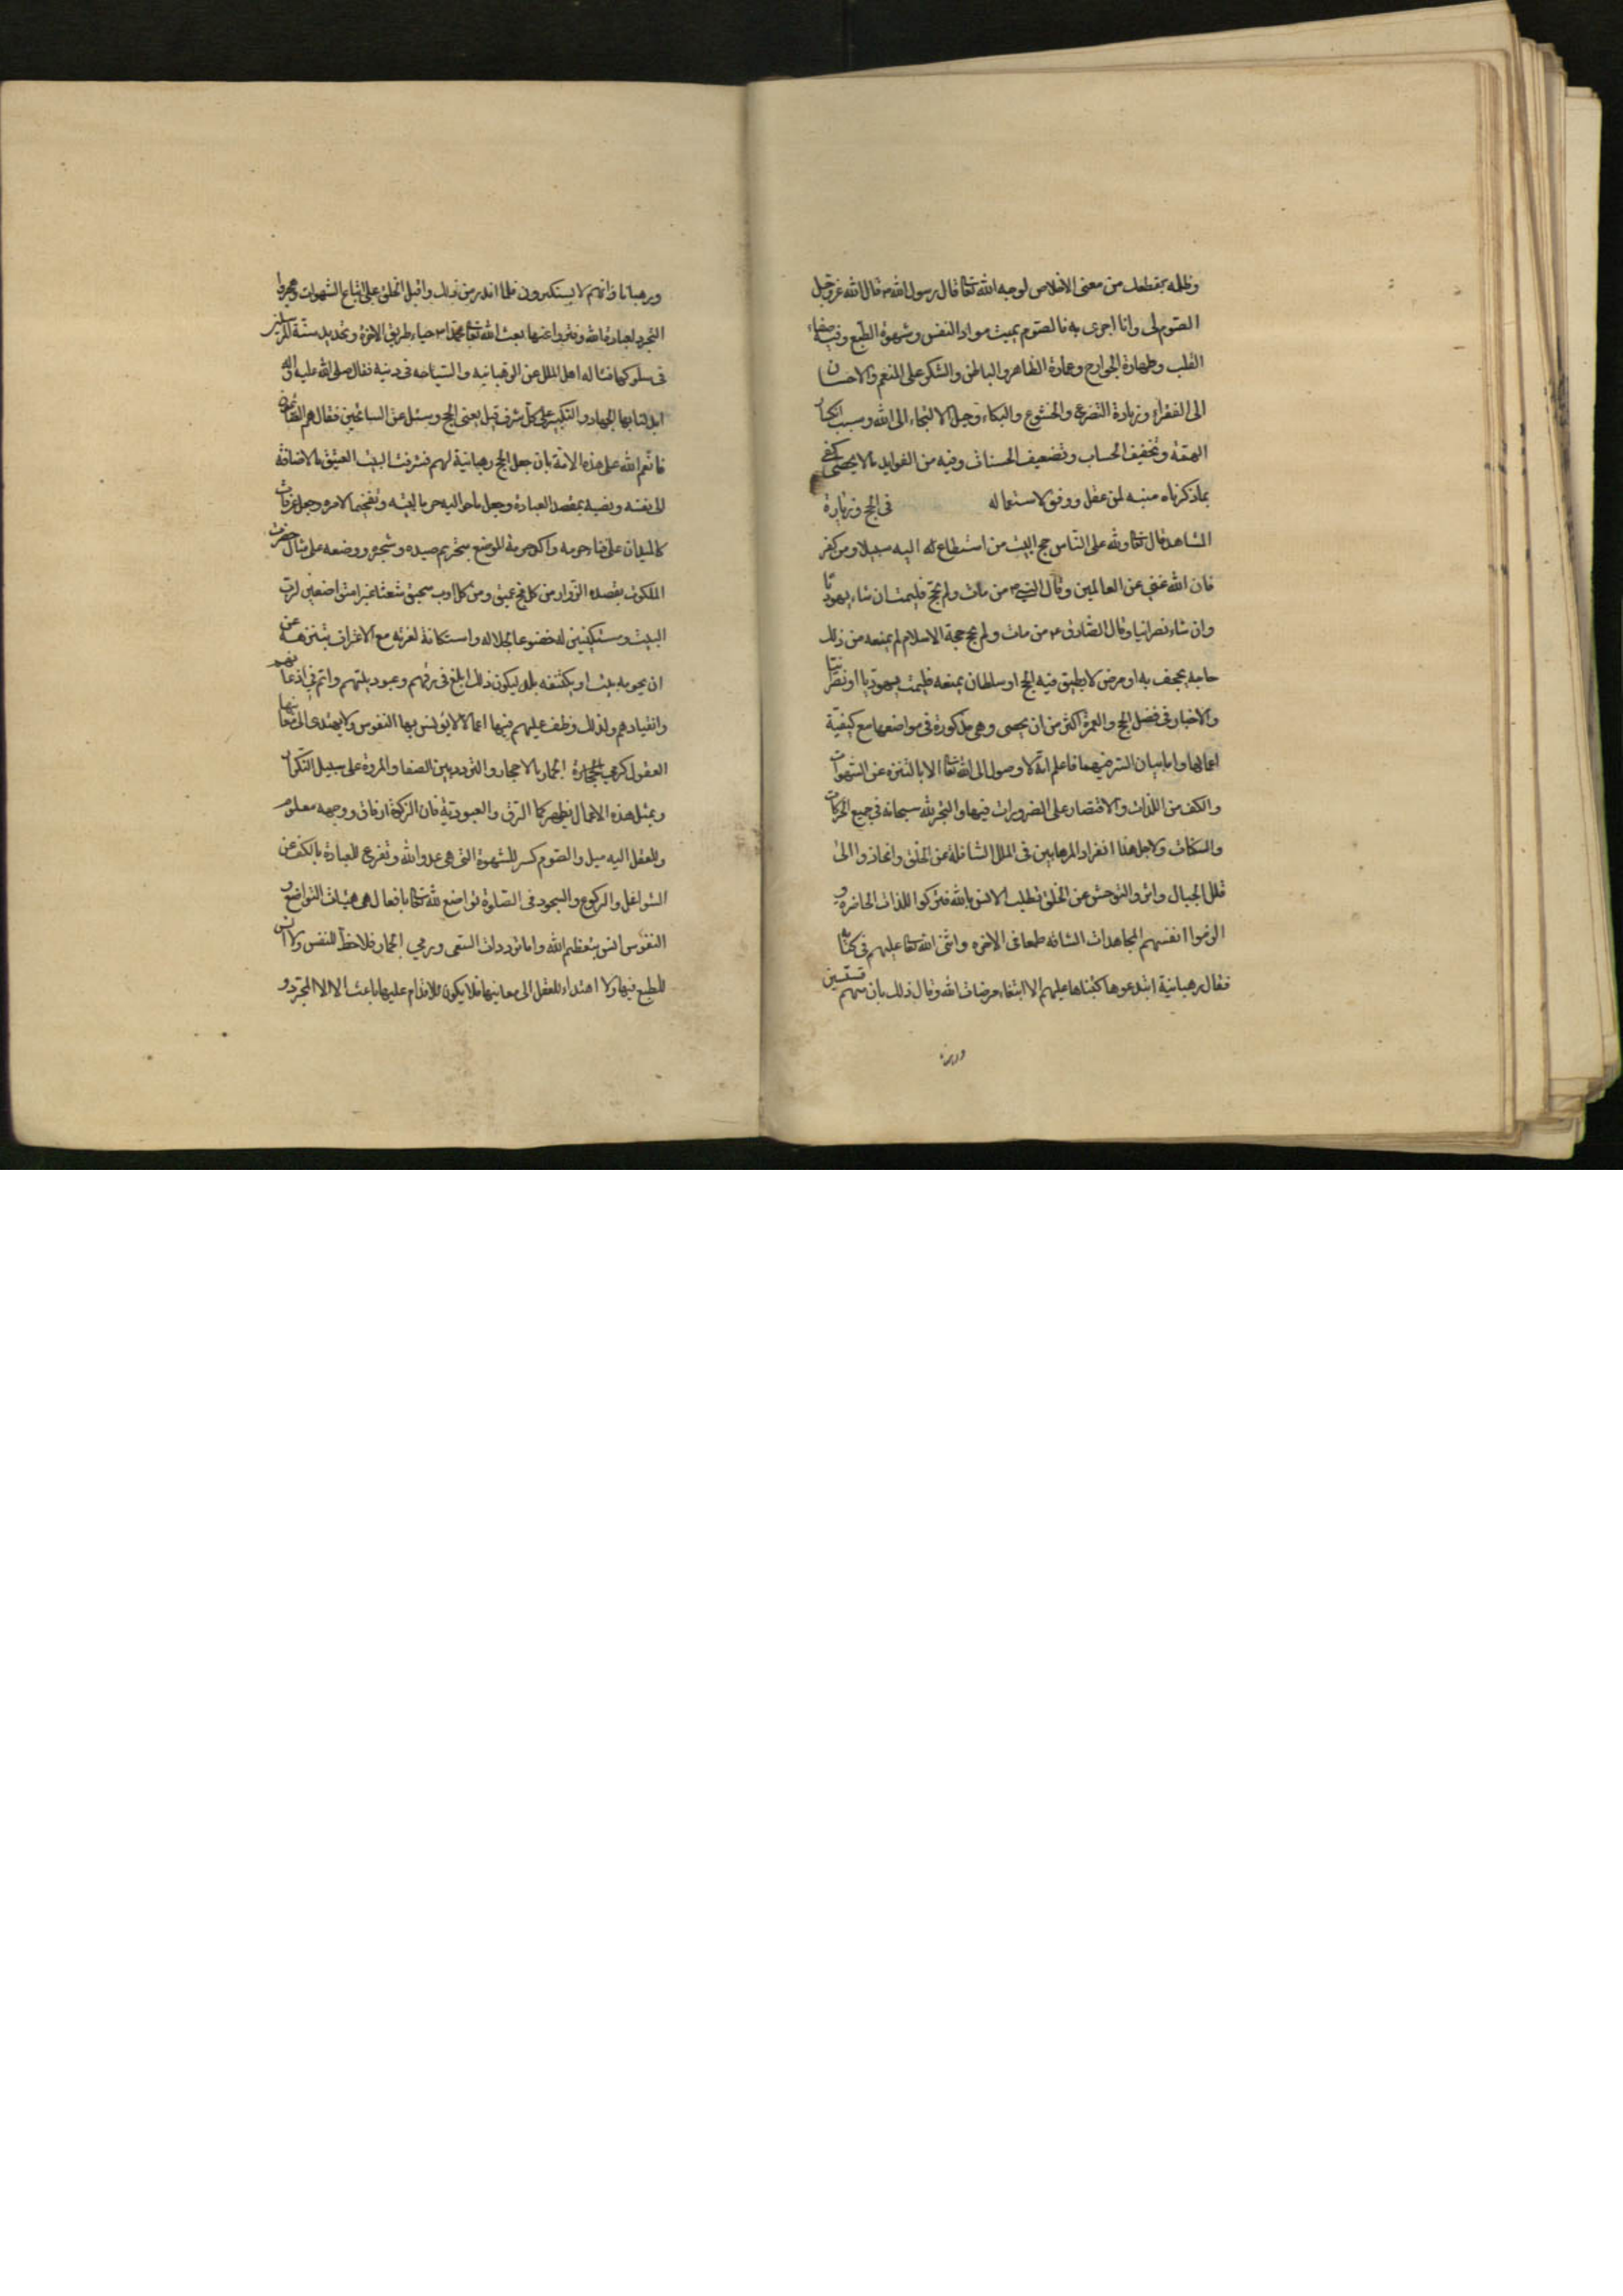 وظلمه بقطعك من معنى الاخلاص لوجه الله تعا قال رسول الله ص قال الله عز وجل
الصوم لى وانا اجزى به فالصوم يميت مواد النفس وشهوة الطبع وفيه صفاء
القلب وطهارة الجوارح وعمارة الظاهر والباطن والشكر على المنعم والاحسان
الى الفقراء وزيادة التضرع والخشوع والبكاء وحبل الالتجاء الى الله وسبب انكسار
الهمة وتخفيف الحساب وتضعيف الحسنات وفيه من الفوايد ما لا يحصى كفى
بما ذكرناه منبه لمن عقل ووفق لاستعماله في الحج وزيارة
المشاهد قال تعا ولله على الناس حج البيت من استطاع له اليه سبيلا ومن كفر
فان الله غني عن العالمين وقال النبي ص من مات ولم يحج فليمت ان شاء يهوديا
وان شاء نصرانيا وقال الصادق ع من مات ولم يحج حجة الاسلام لم يمنعه من ذلك
حاجة يجحف به او مرض لا يطيق فيه الحج او سلطان يمنعه فليمت يهوديا او نصرانيا
والاخبار في فضل الحج والعمرة اكثر من ان يحصى وهي مذكورة في مواضعها مع كيفية
اعمالها واما بيان السر فيهما فاعلم انه لا وصول الى الله تعا الا بالتنزه عن الشهوات
والكف من اللذات والاقتصار على الضرورات فيها والتجرد لله سبحانه في جميع الحركات
والسكنات ولاجل هذا انفراد الرهابين فى الملل السالفة عن الخلق وانحازوا الى
قلل الجبال واثروا التوحش عن الخلق لطلب الانس بالله فتركوا اللذات الحاضرة و
الزموا انفسهم المجاهدات الشاقه طمعا فى الاخره واثنى الله تعا عليهم فى كتابه
فقال رهبانية ابتدعوها كتبناها عليهم الا ابتغاء مرضات الله وقال ذلك بان منهم قسيسين
ورهبانا
ورهبانا وانهم لا يستكبرون فلما اندرس ذلك واقبل الخلق على اتباع الشهوات وهجروا
التجرد لعبادة الله وفتروا عنها بعث الله تعا محمدا ص لاحياء طريق الاخرة وتجديد سنة المرسلين
فى سلوكها فساله اهل الملل عن الرهبانيه والسياحه فى دينه فقال صلى الله عليه واله
ابدلنا بها الجهاد والتكبير على كل شرف قيل يعنى الحج وسئل عن السائحين فقال هم الصائمون
فانعم الله على هذه الامة بان جعل الحج رهبانية لهم فشرفت البيت العتيق بالاضافة
الى نفسه ونصبه بمقصد العبادة وجعل ما حواليه حرما لبيته وتفخيما لامره وجعل عرفات
كالميدان على فناء حرمه واكد حرمة الموضع بتحريم صيده وشجره ووضعه على مثال حضرت
الملكوت يقصده الزوار من كل فج عميق ومن كل اوب سحيق شعثا غبرا متواضعين لرب
البيت ومستكينين له خضوعا لجلاله واستكانة لعزته مع الاعتراف بتنزهه عن
ان يحويه بيت او يكتنفه بلد ليكون ذلك ابلغ فى رقهم وعبوديتهم واتم في اذعانهم
وانقيادهم ولذلك وظف عليهم فيها اعمالا لا يونس بها النفوس ولا يهتدى الى معانيها
العقول كرمي الجمار بالاحجار والتردد بين الصفا والمروة على سبيل التكرار
وبمثل هذه الاعمال يظهر كمال الرق والعبودية فان الزكوة ارفاق ووجهه معلوم
وللعقل اليه ميل والصوم كسر للشهوة التى هى عدو الله وتفرغ للعبادة بالكف عن
الشواغل والركوع والسجود فى الصلوة تواضع لله تعا بافعال هى هيئات التواضع و
النفوس انس بتعظيم الله واما ترددات السعى ورمي الجمار فلا حظ للنفس ولا انس
للطبع فيها ولا اهتداء للعقل الى معانيها فلا يكون للاقدام عليها باعث الا الامر المجرد و